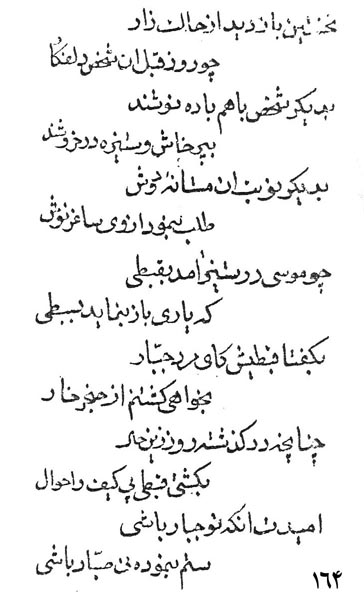 نخستین باز دید از حال زار
چو روز قبل ان شخص دلفکار
بدیکر شخص باهم باده نوشند
بپرخاش و ستیزه در خروشند
بدیکر نوبت ان مستانه دوش
طلب بنمود ازوی ساغر نوش
چو موسی در ستیز امد بقبطی
که یاری باز بنماید بسبطی
بکفتا قبطیش کای مرد جبّار
بخواهی کشتنم از خنجر خار
چنانچه در کذشته روز زین حال
بکشتی قبطی بی کیف و احوال
امیدت انکه تو جبار باشی
ستم بنموده نی صبّار باشی
۱۶۴